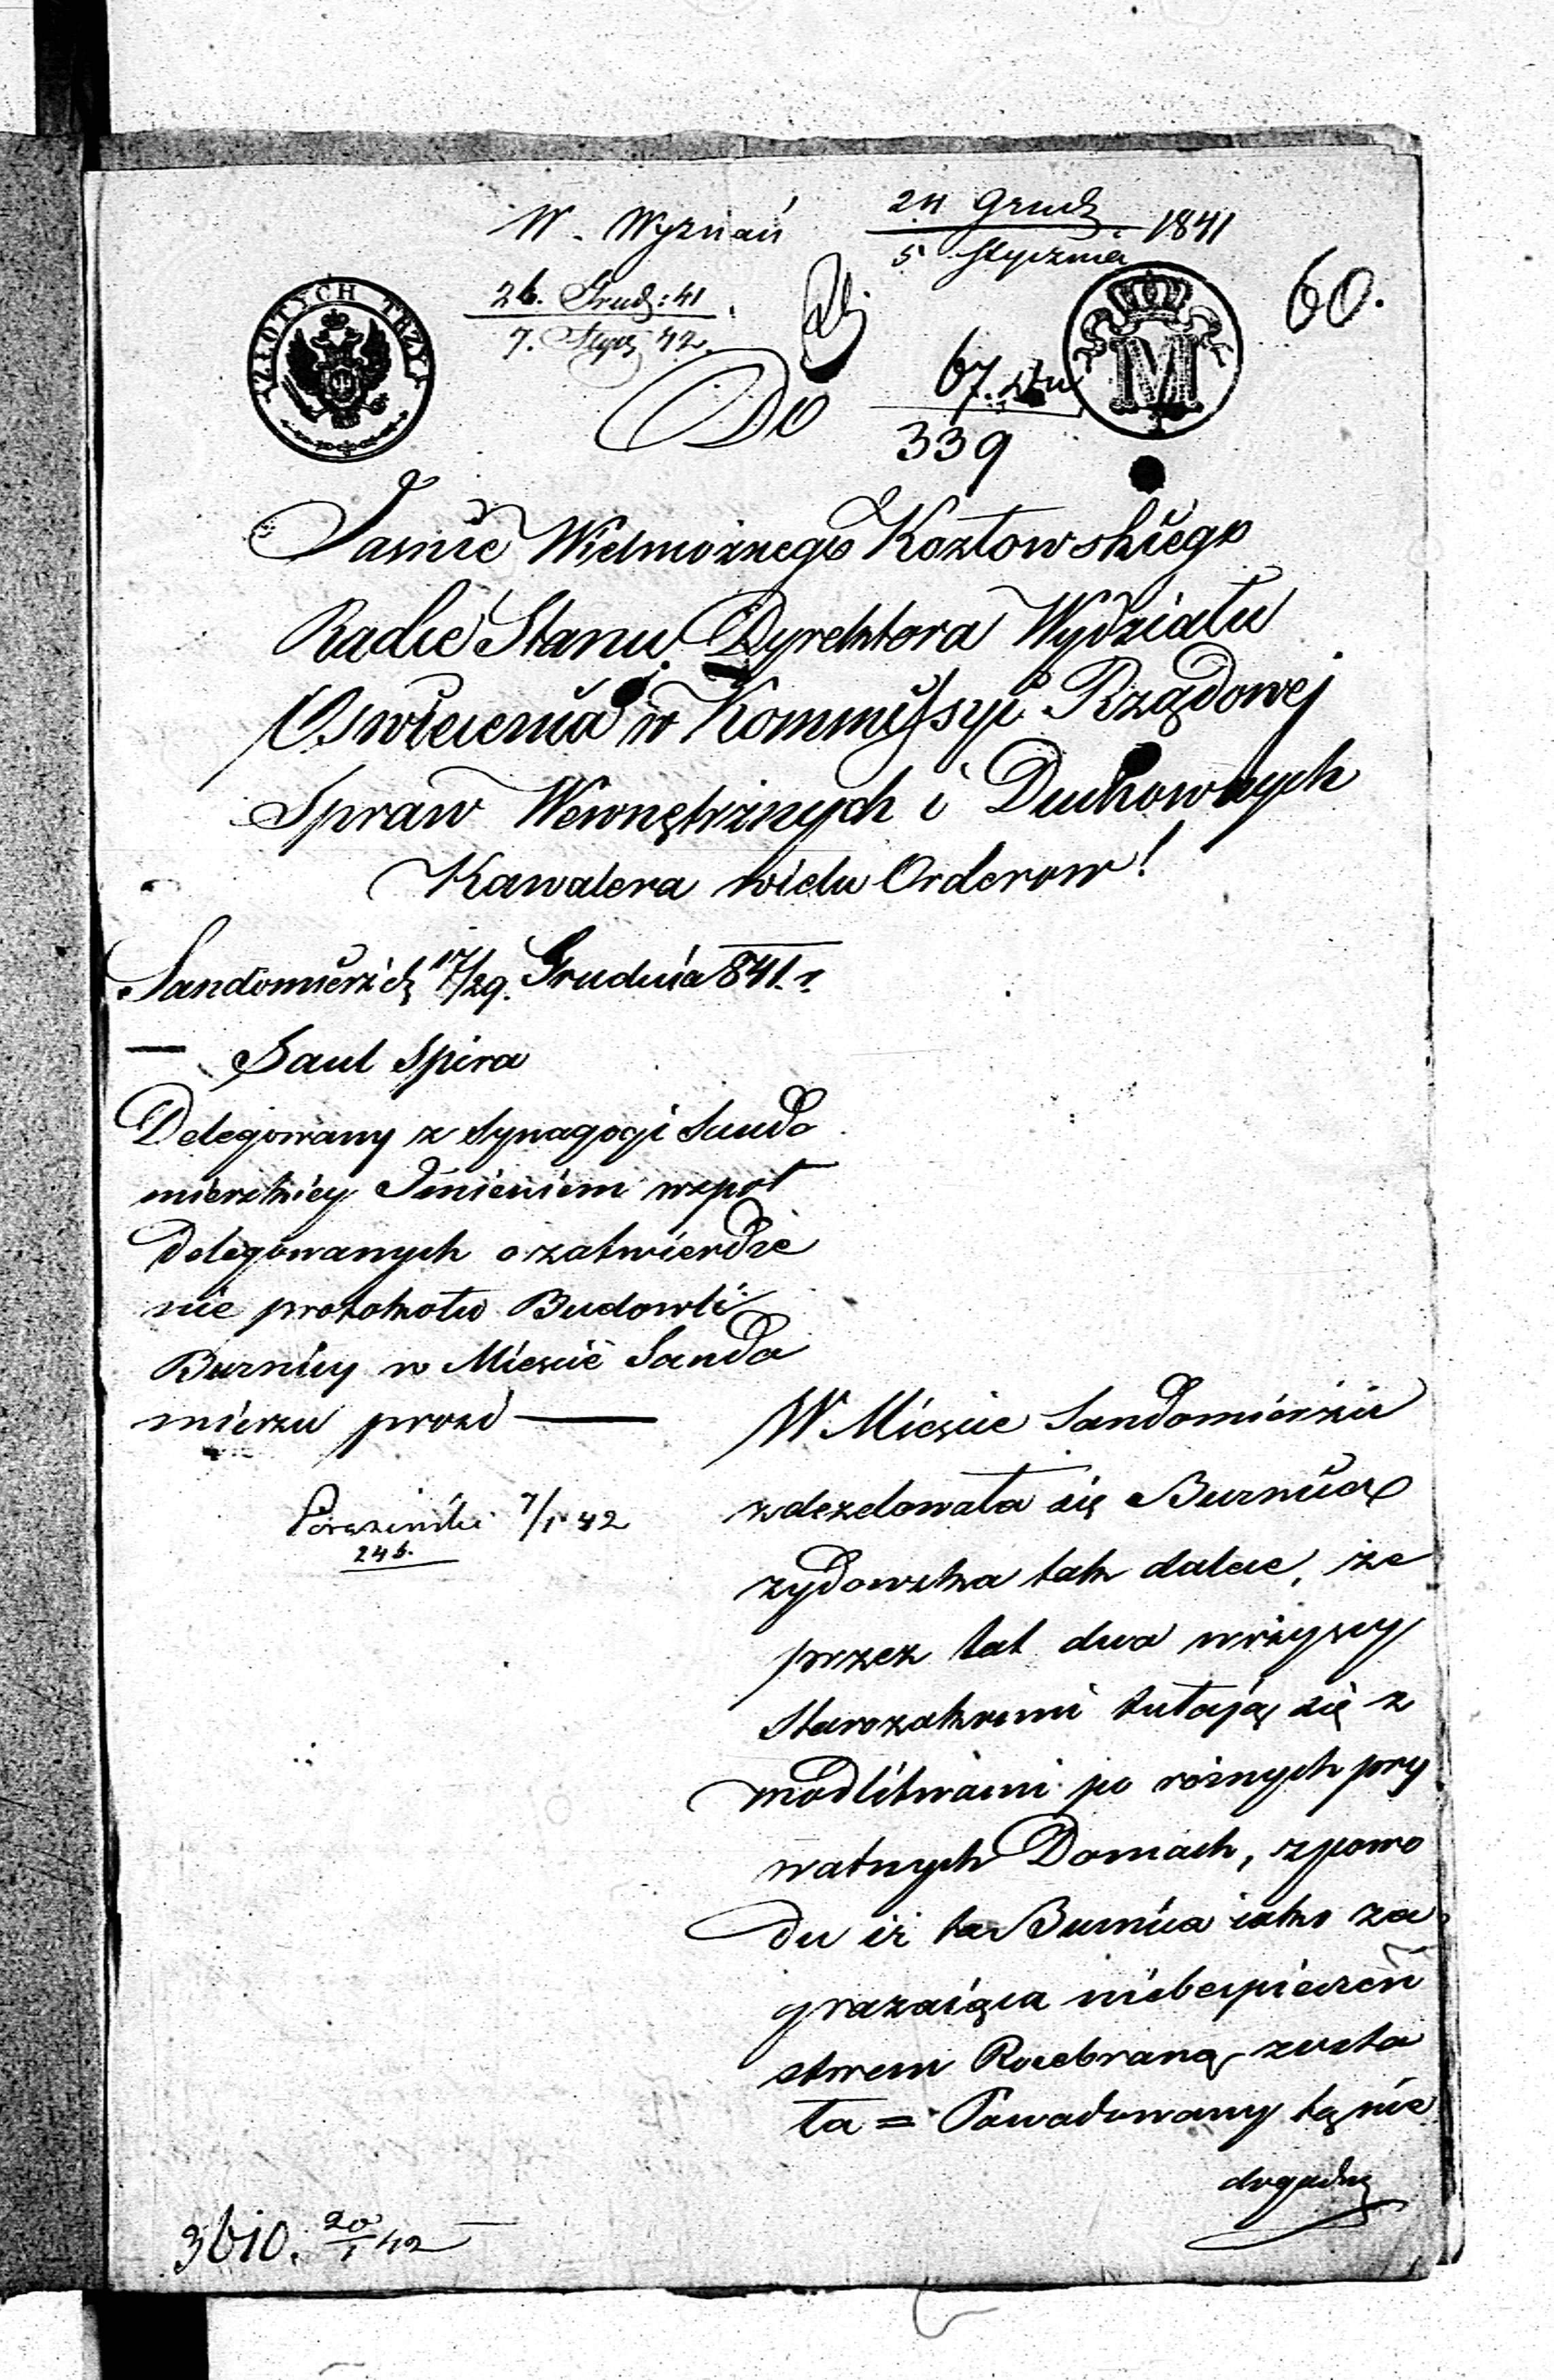 W. Wyznań
24 Grud. 1841
5 Stycznia
26. Grud: 41.
7. Stycz 42.
60.
ZŁOTYCH TRZY
M
67.
339
Do
Jaśnie Wielmożnego Kozłowskiego
Radcę Stanu Dyrektora Wydziału
Oswiecenia w Kommissyi Rządowej
Spraw Wewnętrznych i Duchownych
Kawalera wielu Orderow!
Sandomierz d. 17/29. Grudnia 841. r.
Saul Spira
Delegowany z Synagogi Sando
mierskiey Imieniem wspoł
delegowanych o zatwierdze
nie protokołu Budowli
Buznicy w Miescie Sando
mierzu prosi
7/1 42
24 b.
W Miescie Sandomierzu
zdezelowała się Buznica
zydowska tak dalece, że
przez lat dwa wszyscy
Starozakonni tułają się z
modlitwami po rożnych pry
watnych Domach, zpowo
du iż ta Buznica iako za
grazaiąca niebespieczeń
stwem Rozebraną zosta
ła = Powodowany tą nie
dogodną
3610. 20/1 42